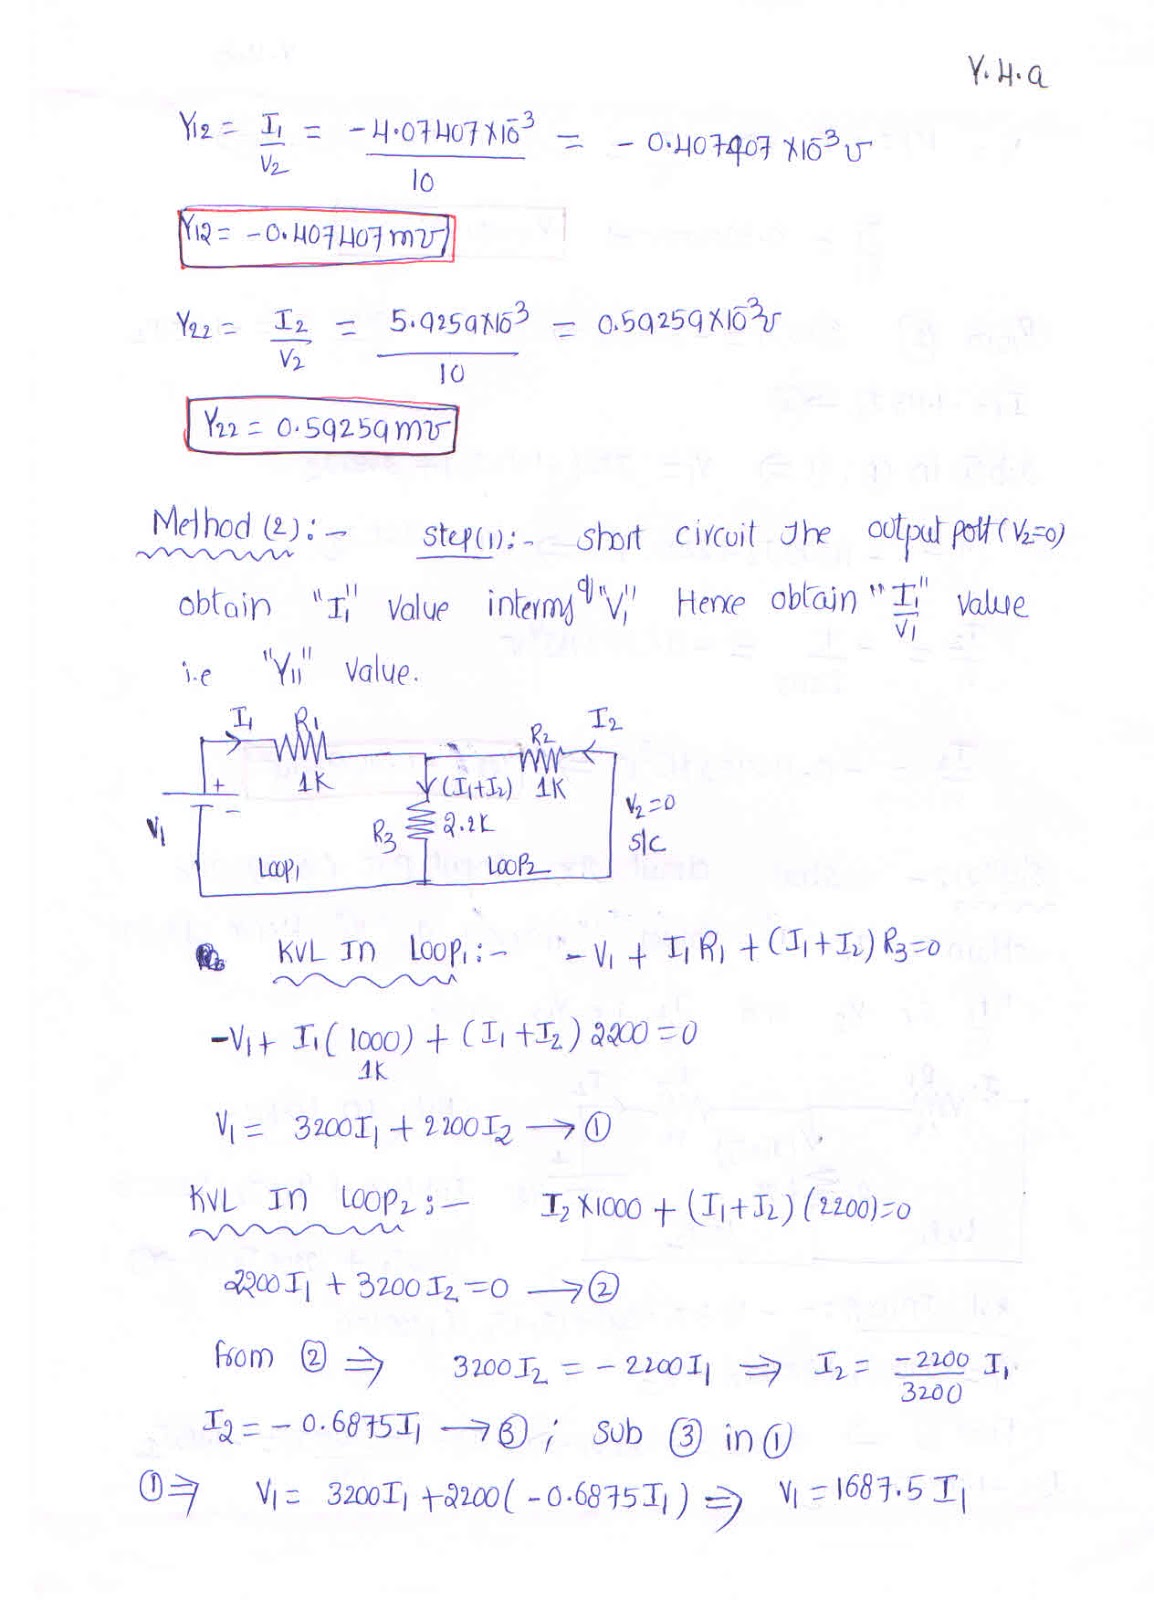 Y.4.a
Y12 = I1/V2 = -4.07407×10^-3/10 = -0.407407×10^-3 ℧
Y12 = -0.407407 m℧
Y22 = I2/V2 = 5.9259×10^-3/10 = 0.59259×10^-3 ℧
Y22 = 0.59259 m℧
Method (2):- Step(1):- short circuit the output port (V2=0)
obtain "I1" value interms of "V1" Hence obtain "I1/V1" value
i.e "Y11" value.
I1 R1 I2
R2
+ 1K (I1+I2) 1K
- V2=0
V1 R3 2.2K S/C
LOOP1 LOOP2
KVL IN LOOP1:- -V1 + I1R1 + (I1+I2)R3=0
-V1 + I1(1000) + (I1+I2)2200=0
1K
V1 = 3200I1 + 2200I2 → ①
KVL IN LOOP2:- I2×1000 + (I1+I2)(2200)=0
2200I1 + 3200I2=0 → ②
from ② ⇒ 3200I2 = -2200I1 ⇒ I2 = -2200/3200 I1
I2 = -0.6875I1 → ③; sub ③ in ①
① ⇒ V1 = 3200I1 + 2200(-0.6875I1) ⇒ V1 = 1687.5 I1